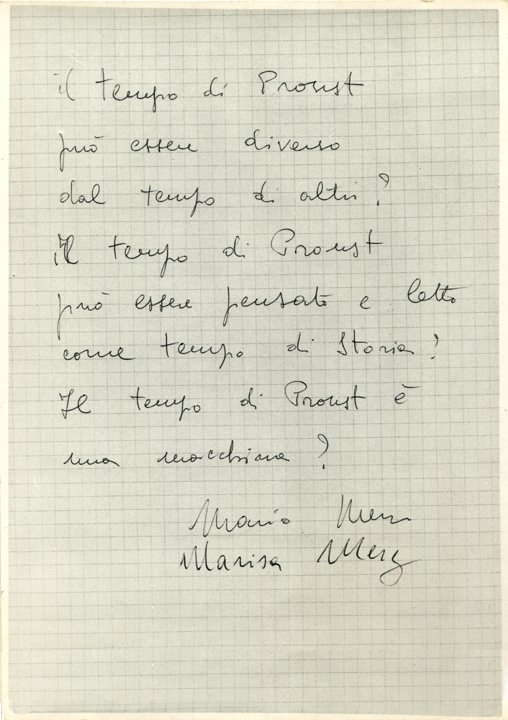 il tempo di Proust
può essere diverso
dal tempo di altri?
il tempo di Proust
può essere pensato e letto
come tempo di Storia?
Il tempo di Proust è
una macchina?
Mario Merz
Marisa Merz